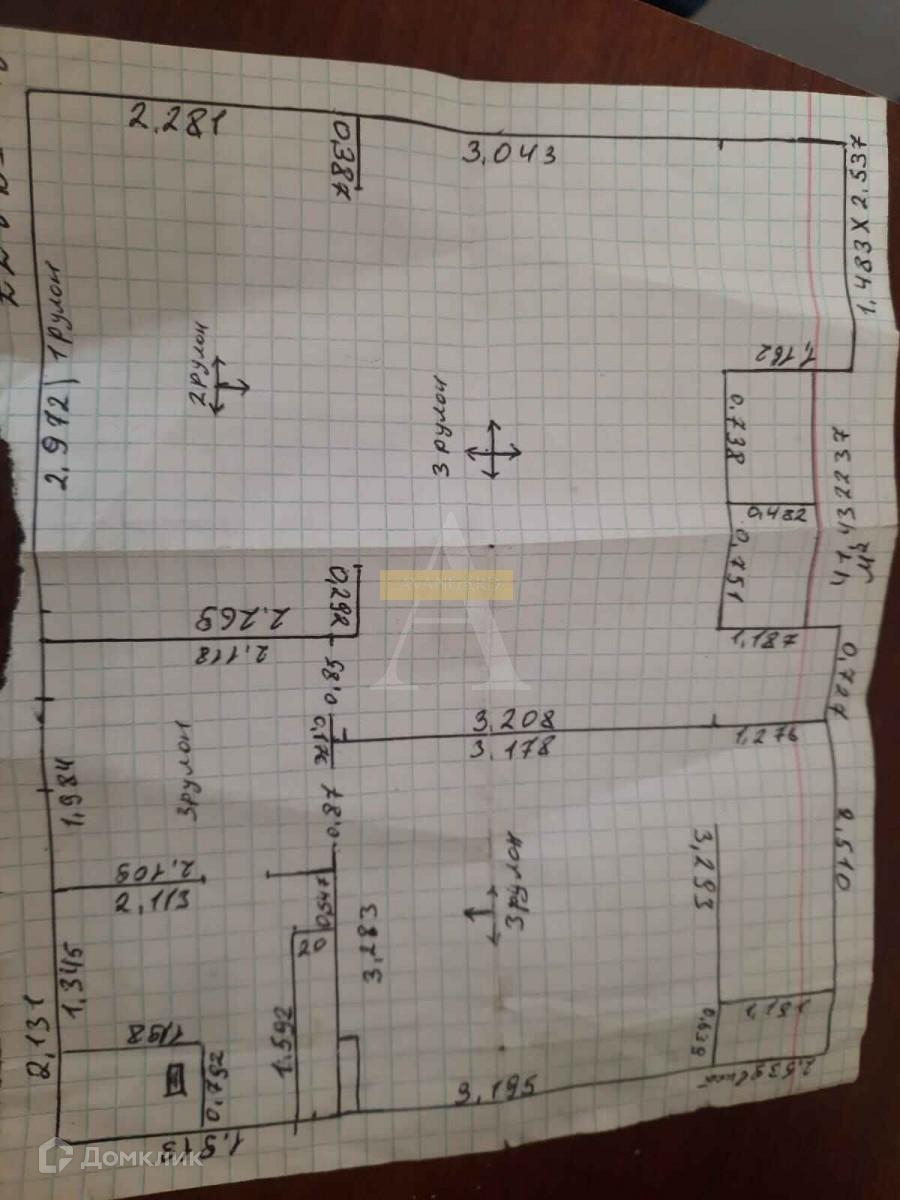 2.281
0,387
3,043
1,483 X 2.537
2.972
1 рулон
2 рулон
3 рулон
1,162
0.738
0,482
0,751
41,432237
м²
1,187
0,292
2.269
2.118
0,85
0,176
3.208
3.178
1,276
0,727
1,984
3 рулон
0,87
2.109
2,113
0,547
20
3,283
3 рулон
3,293
2,510
1,345
2,131
1,98
0,792
1.592
0,639
3,195
Домклик